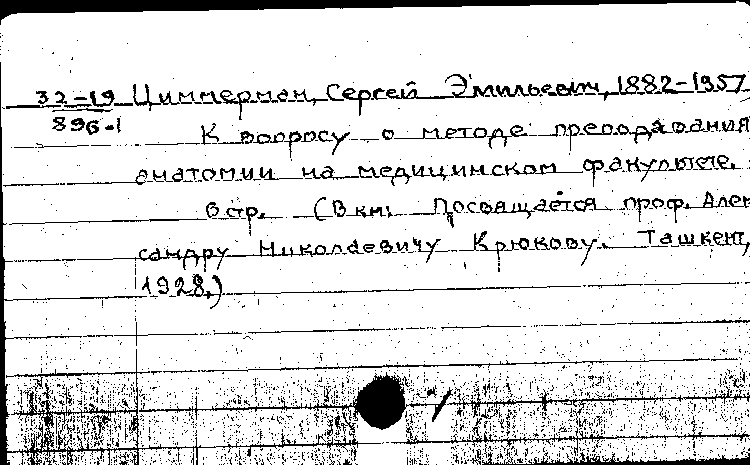 32-19 Циммерман, Сергей Эмильевич, 1882-1957
896-1
К вопросу о методе преподавания
анатомии на медицинском факультете.
6 стр. (В кн: Посвящается проф. Алек
сандру Николаевичу Крюкову. Ташкент,
1928.)